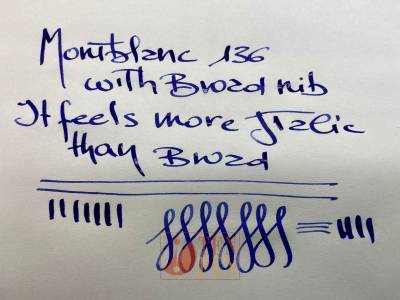 Montblanc 136
with Broad nib
It feels more Italic
than Broad